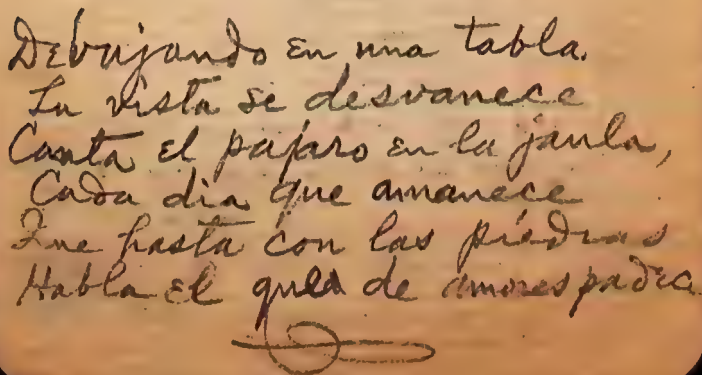 Debujando en una tabla.
La vista se desvanece
Canta el pajaro en la jaula,
Cada dia que amanece
Que hasta con las piedras
Habla el que de amores padec